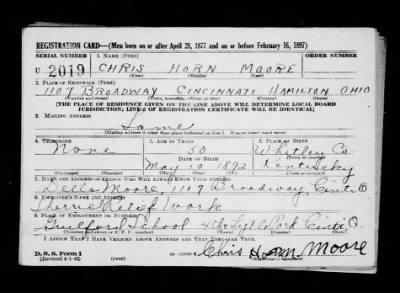 REGISTRATION CARD—(Men born on or after April 28, 1877 and on or before February 16, 1897)
SERIAL NUMBER 1. NAME (Print)
U 2019 CHRIS HORN MOORE
(First) (Middle) (Last)
2. PLACE OF RESIDENCE (Print)
1107 BROADWAY CINCINNATI HAMILTON OHIO
[THE PLACE OF RESIDENCE GIVEN ON THE LINE ABOVE WILL DETERMINE LOCAL BOARD
JURISDICTION; LINE 2 OF REGISTRATION CERTIFICATE WILL BE IDENTICAL]
3. MAILING ADDRESS
Same
[Mailing address if other than place indicated on line 2. If same insert word same]
4. TELEPHONE 5. AGE IN YEARS 6. PLACE OF BIRTH
None 50 Whitley Co
DATE OF BIRTH
May 10 1892 Kentucky
7. NAME AND ADDRESS OF PERSON WHO WILL ALWAYS KNOW YOUR ADDRESS
Della Moore, 1107 Broadway Cinti O
8. EMPLOYER'S NAME AND ADDRESS
Relief Work
9. PLACE OF EMPLOYMENT OR BUSINESS
Guilford School 4th Lytle Park Cinti O.
I AFFIRM THAT I HAVE VERIFIED ABOVE ANSWERS AND THAT THEY ARE TRUE.
D. S. S. Form 1
(Revised 4-1-42) Chris Horn Moore